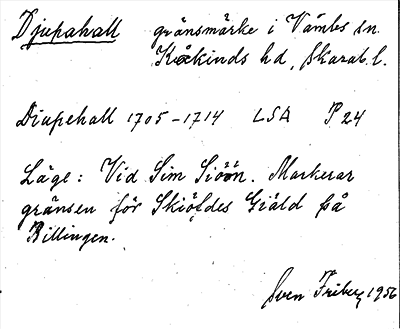 Djupahall gränsmärke i Vämbs sn.
Kåkinds hd, Skarab. l.
Diupehall 1705-1714 LSA P. 24
Läge: Vid Sim Siöön. Markerar
gränsen för Skiöfdes Giäld på
Billingen.
Sven Friberg 1956